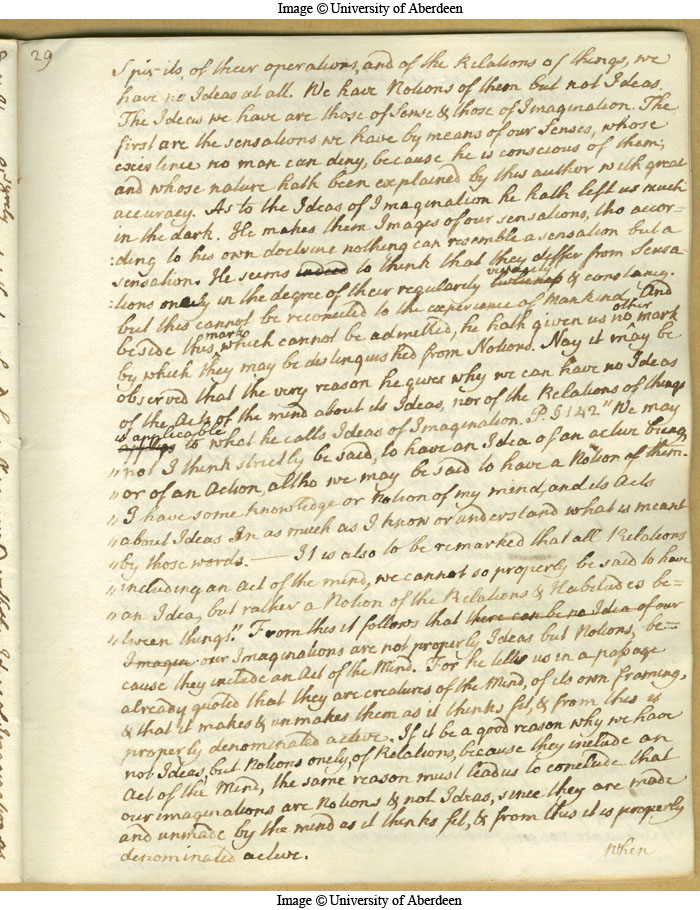 Image © University of Aberdeen
29
Spirits, of their operations, and of the Relations of things, we
have no Ideas at all. We have Notions of them but not Ideas.
The Ideas we have are those of Sense & those of Imagination. The
first are the sensations we have by means of our Senses, whose
existence no man can deny, because he is conscious of them;
and whose nature hath been explained by this author with great
accuracy. As to the Ideas of Imagination he hath left us much
in the dark. He makes them Images of our sensations, tho accor-
:ding to his own doctrine nothing can resemble a sensation but a
sensation. He seems to think that they differ from Sensa-
:tions onely in the degree of their regularity vivacity & constancy.
but this cannot be reconciled to the experience of Mankind. And
beside this mark, which cannot be admitted, he hath given us no other mark
by which they may be distinguished from Notions. Nay it may be
observed that the very reason he gives why we can have no Ideas
of the Acts of the mind about its Ideas, nor of the Relations of things
is applicable to what he calls Ideas of Imagination. P. § 142 " We may
" not I think strictly be said, to have an Idea of an active
" or of an Action, altho we may be said to have a Notion of them.
" I have some knowledge or Notion of my mind, and its Acts
" about Ideas In as much as I know or understand what is meant
" by those words. — It is also to be remarked that all Relations
" including an act of the mind, we cannot so properly be said to have
" an Idea, but rather a Notion of the Relations & Habitudes be-
" tween things." From this it follows that there can be no Idea of our
Imagin our Imaginations are not properly Ideas but Notions, be-
cause they include an Act of the Mind. For he tells us in a passage
already quoted that they are creatures of the Mind, of its own framing,
& that it makes & unmakes them as it thinks fit, & from this is
properly denominated active. If it be a good reason why we have
not Ideas, but Notions onely, of Relations, because they include an
Act of the Mind, the same reason must lead us to conclude that
our imaginations are Notions & not Ideas, since they are made
and unmade by the mind as it thinks fit, & from this it is properly
denominated active.
When
Image © University of Aberdeen